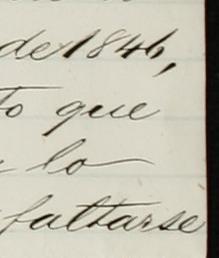 de 1846,
to que
lo
faltarse